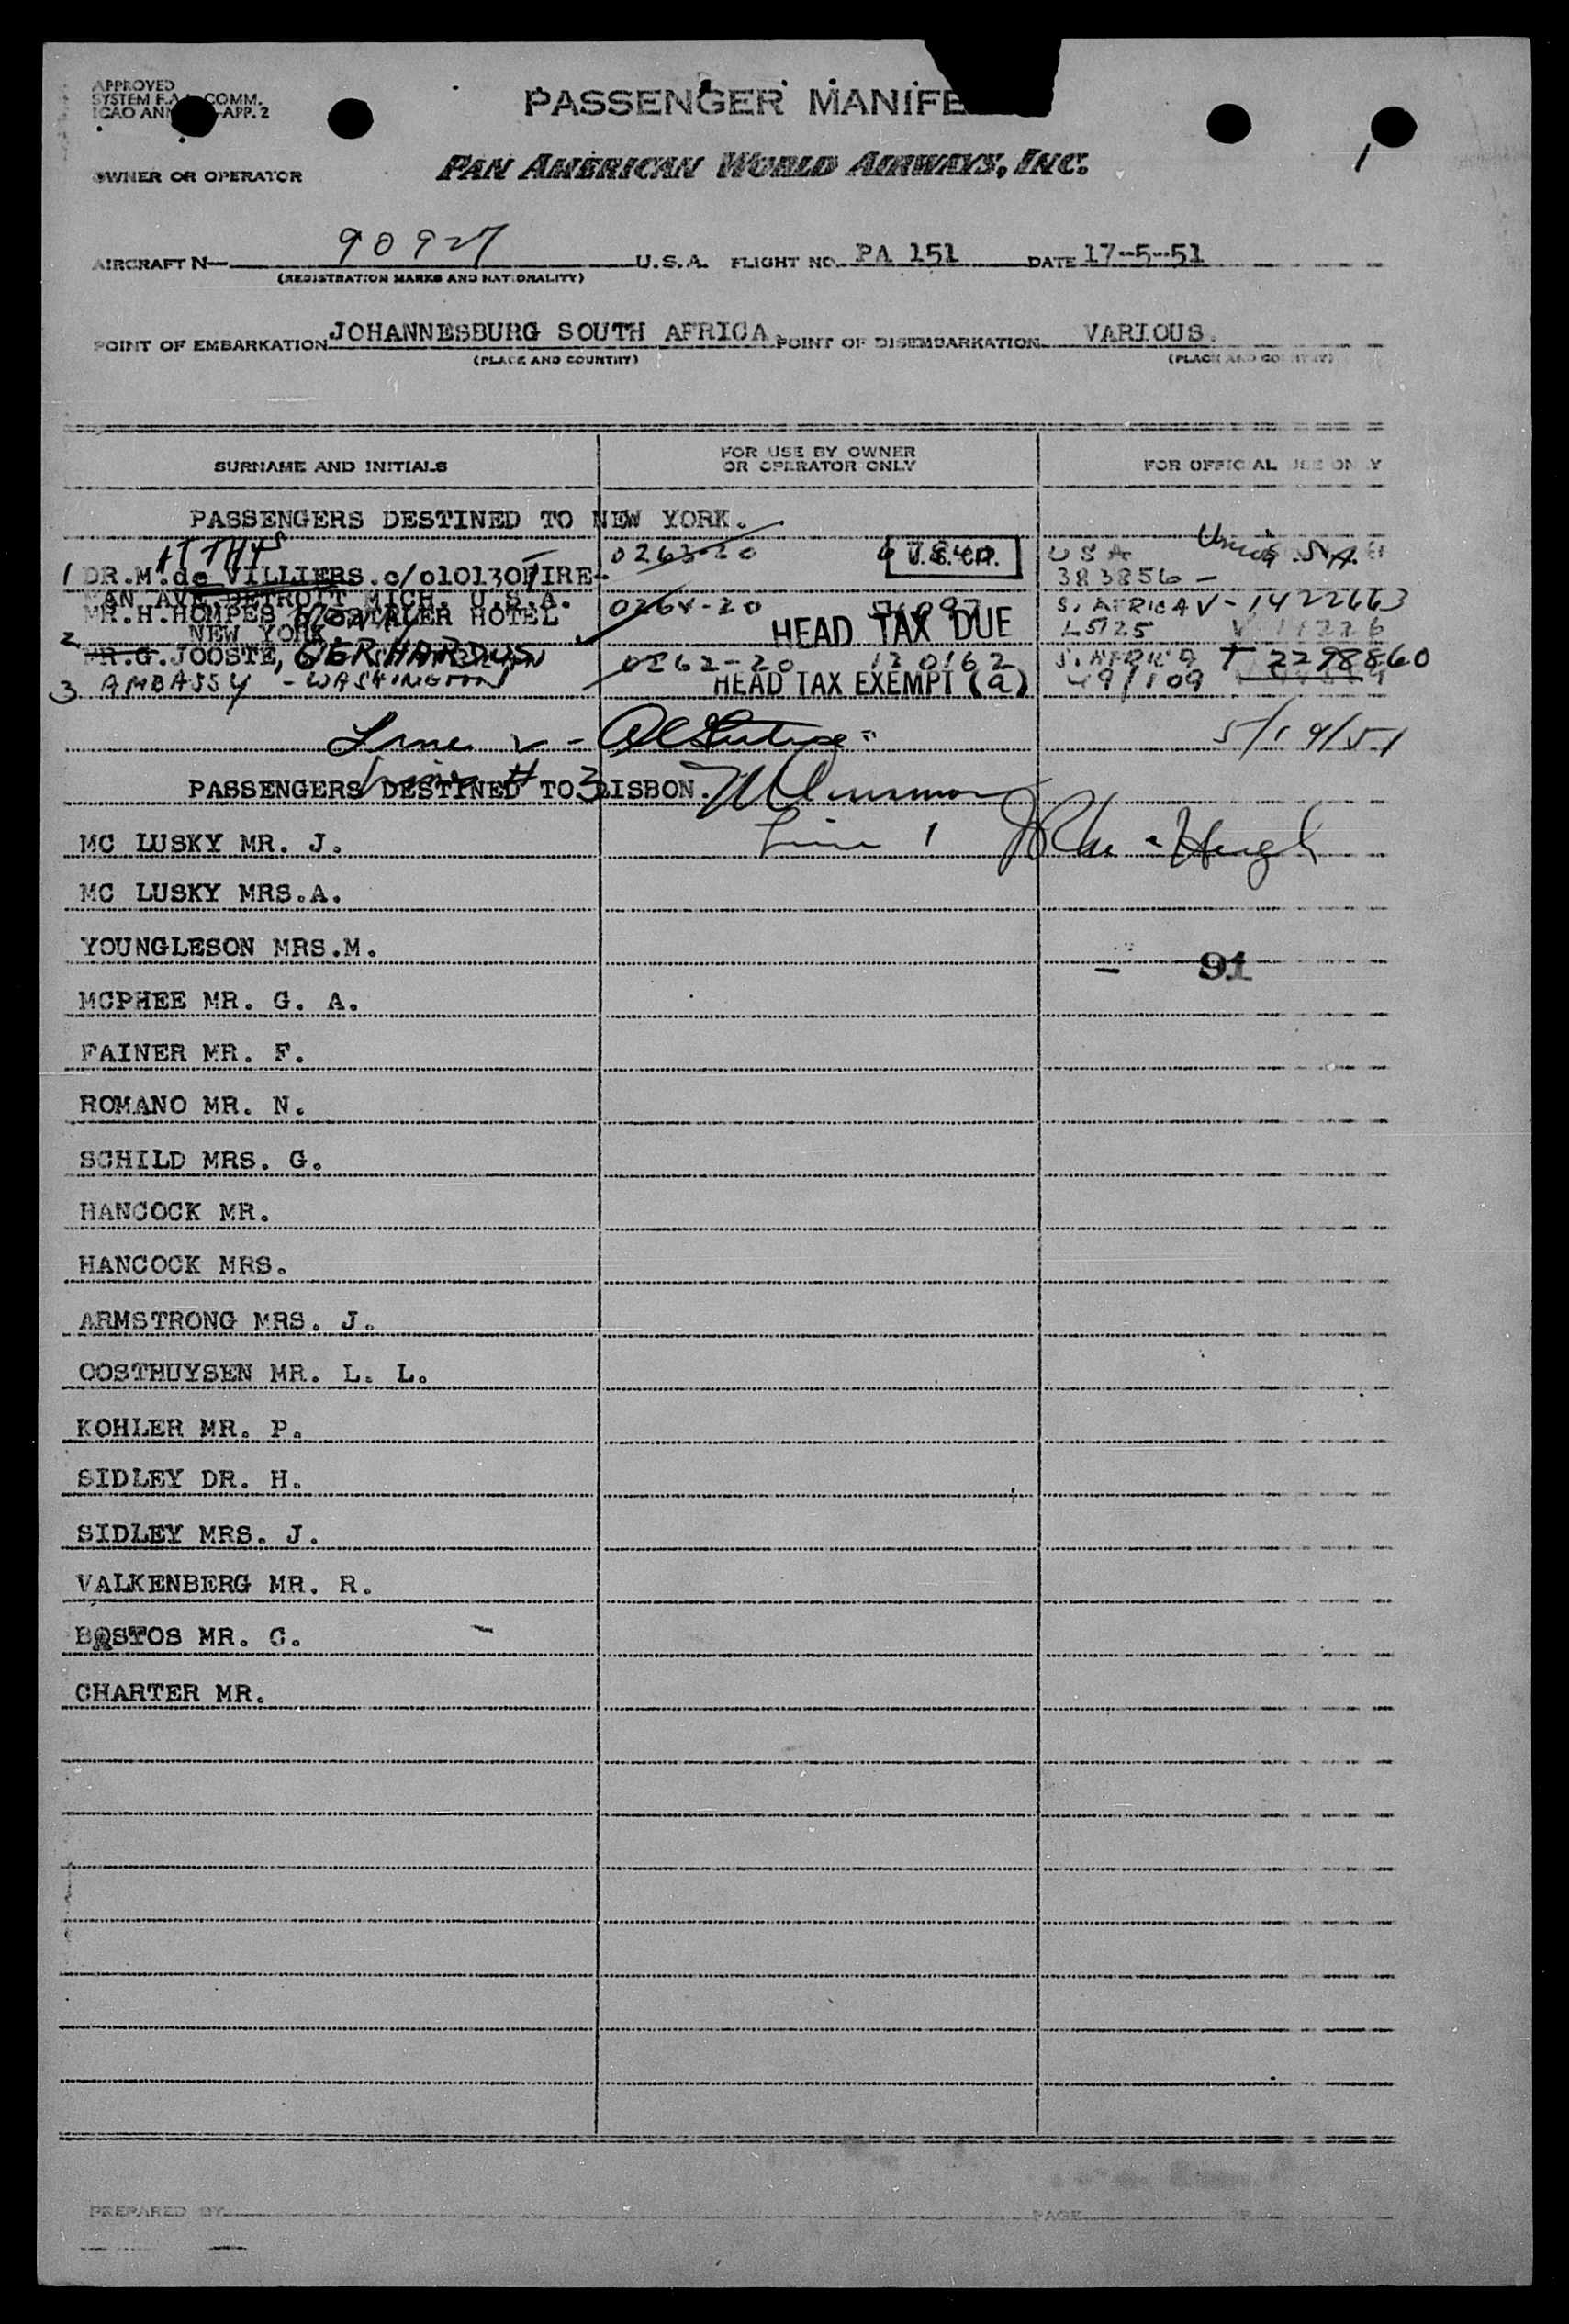 APPROVED
SYSTEM F.A. COMM.
ICAO ANN APP. 2
PASSENGER MANIFE
OWNER OR OPERATOR
PAN AMERICAN WORLD AIRWAYS, INC.
1
AIRCRAFT N— 90927 U.S.A. FLIGHT NO. PA 151 DATE 17-5-51
(REGISTRATION MARKS AND NATIONALITY)
POINT OF EMBARKATION JOHANNESBURG SOUTH AFRICA POINT OF DISEMBARKATION VARIOUS.
(PLACE AND COUNTRY) (PLACE AND COUNTRY)
SURNAME AND INITIALS FOR USE BY OWNER OR OPERATOR ONLY FOR OFFICIAL USE ONLY
PASSENGERS DESTINED TO NEW YORK.
ATTHYS 0263-20 U.S. USA
1 DR.M.de VILLIERS.c/o10130 TIRE- 383856 -
MAN AVE.DETROIT MICH. U.S.A. S. AFRICA V-1422663
MR.H.HOMPES HOTEL 0264-20 L5725
2 NEW YORK. HEAD TAX DUE
DR.G.JOOSTE, GERHARDUS 0262-20 120162 S. AFRICA T 2298860
3 AMBASSY - WASHINGTON HEAD TAX EXEMPT (a) 49/109
Line 2 - 5/19/51
Line # 3
PASSENGERS DESTINED TO LISBON.
MC LUSKY MR. J. Line 1
MC LUSKY MRS.A.
YOUNGLESON MRS.M.
- 91
MCPHEE MR. G. A.
FAINER MR. F.
ROMANO MR. N.
SCHILD MRS. G.
HANCOCK MR.
HANCOCK MRS.
ARMSTRONG MRS. J.
OOSTHUYSEN MR. L. L.
KOHLER MR. P.
SIDLEY DR. H.
SIDLEY MRS. J.
VALKENBERG MR. R.
BOSTOS MR. C.
CHARTER MR.
PREPARED BY PAGE OF